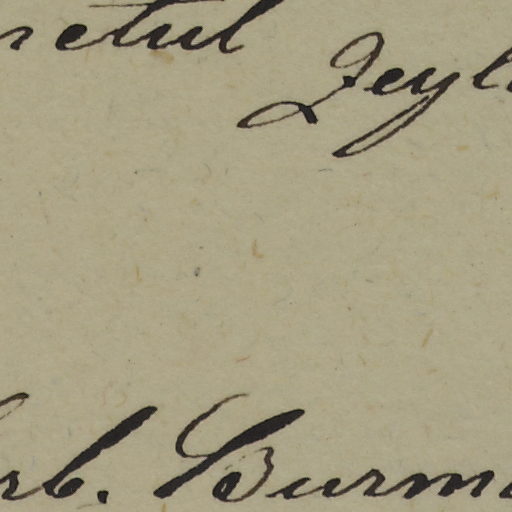 retul Zeyl
rb. Burm